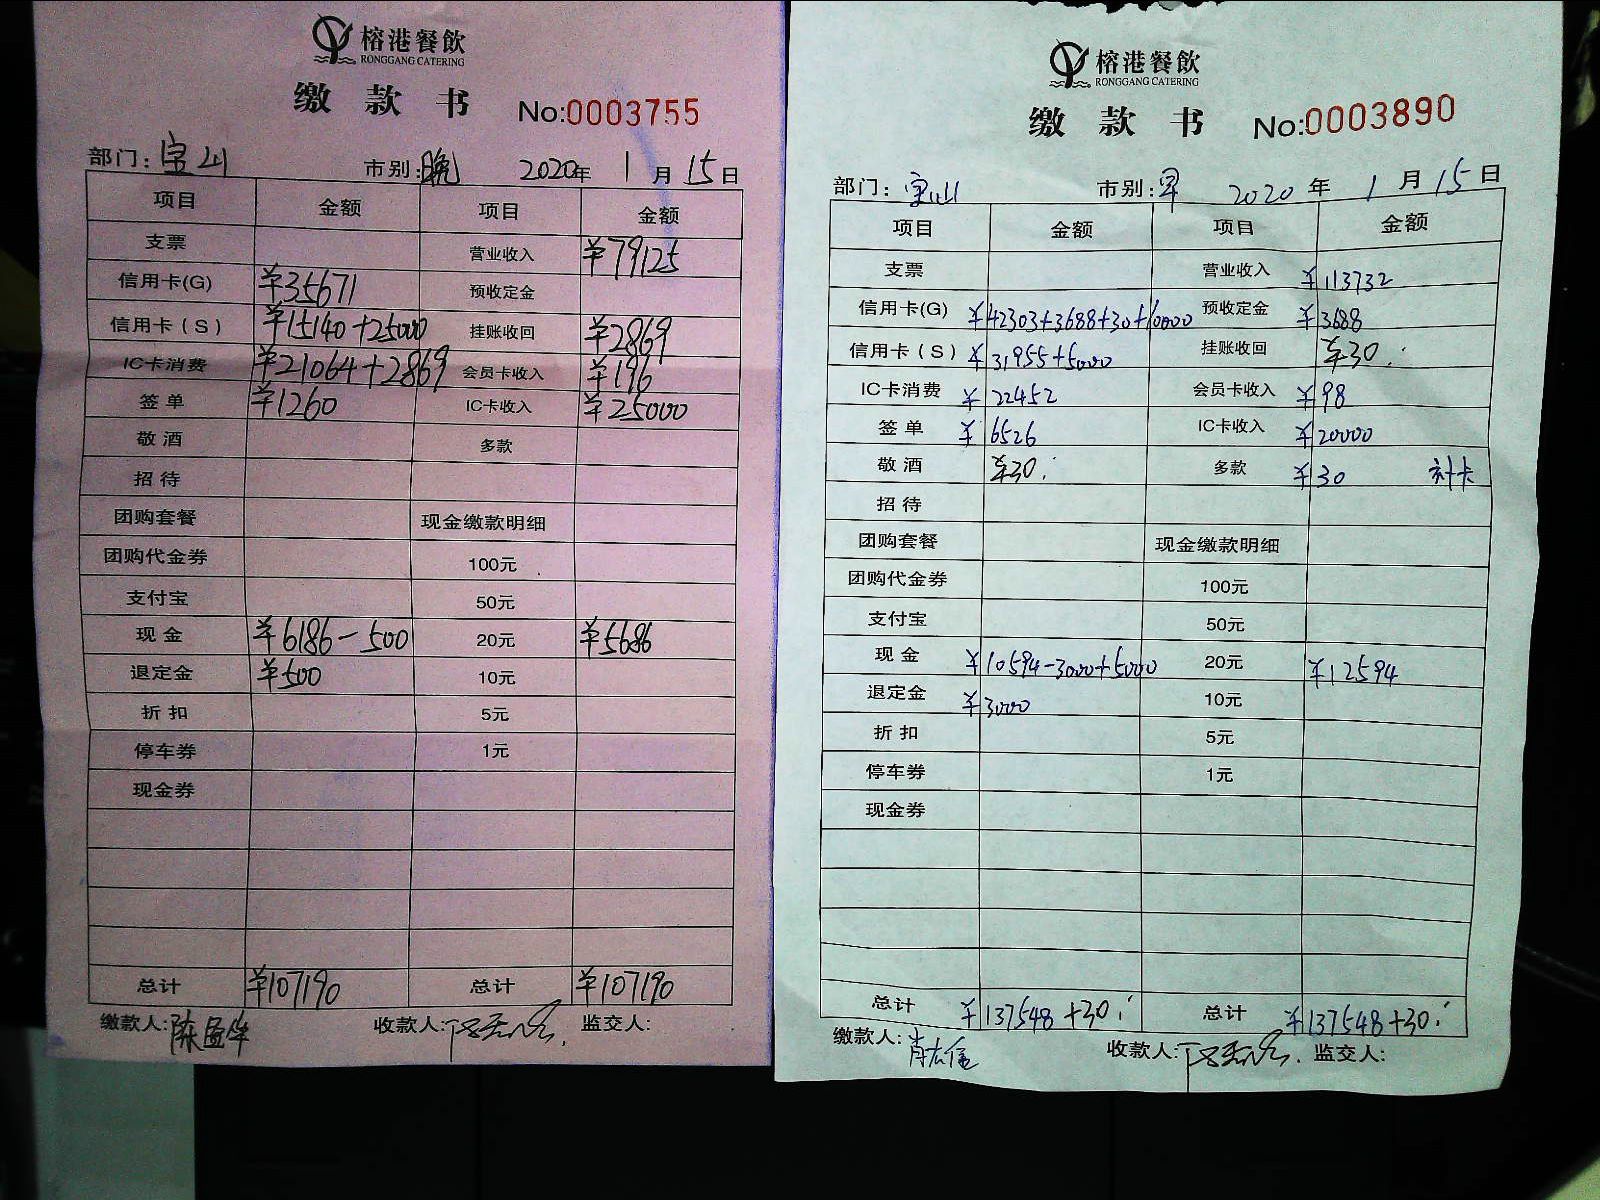 榕港餐飲
RONGGANG CATERING
缴款书 No:0003755
部门:宝山 市别:晚 2020年1月15日
项目 金额 项目 金额
支票 营业收入 ¥79125
信用卡(G) ¥35671 预收定金
信用卡(S) ¥15140+25000 挂账收回 ¥2869
IC卡消费 ¥21064+2869 会员卡收入 ¥196
签单 ¥1260 IC卡收入 ¥25000
敬酒 多款
招待
团购套餐 现金缴款明细
团购代金券 100元
支付宝 50元
现金 ¥6186-500 20元 ¥5686
退定金 ¥500 10元
折扣 5元
停车券 1元
现金券
总计 ¥107190 总计 ¥107190
缴款人: 收款人: 监交人:
榕港餐飲
RONGGANG CATERING
缴款书 No:0003890
部门:宝山 市别:早 2020年1月15日
项目 金额 项目 金额
支票 营业收入 ¥113732
信用卡(G) ¥42303+3688+30+10000 预收定金 ¥3688
信用卡(S) ¥31955+5000 挂账收回 ¥30.
IC卡消费 ¥22452 会员卡收入 ¥98
签单 ¥6526 IC卡收入 ¥20000
敬酒 ¥30. 多款 ¥30 补卡
招待
团购套餐 现金缴款明细
团购代金券 100元
支付宝 50元
现金 ¥10594-3000+5000 20元 ¥12594
退定金 ¥3000 10元
折扣 5元
停车券 1元
现金券
总计 ¥137548+30. 总计 ¥137548+30.
缴款人: 收款人: 监交人: